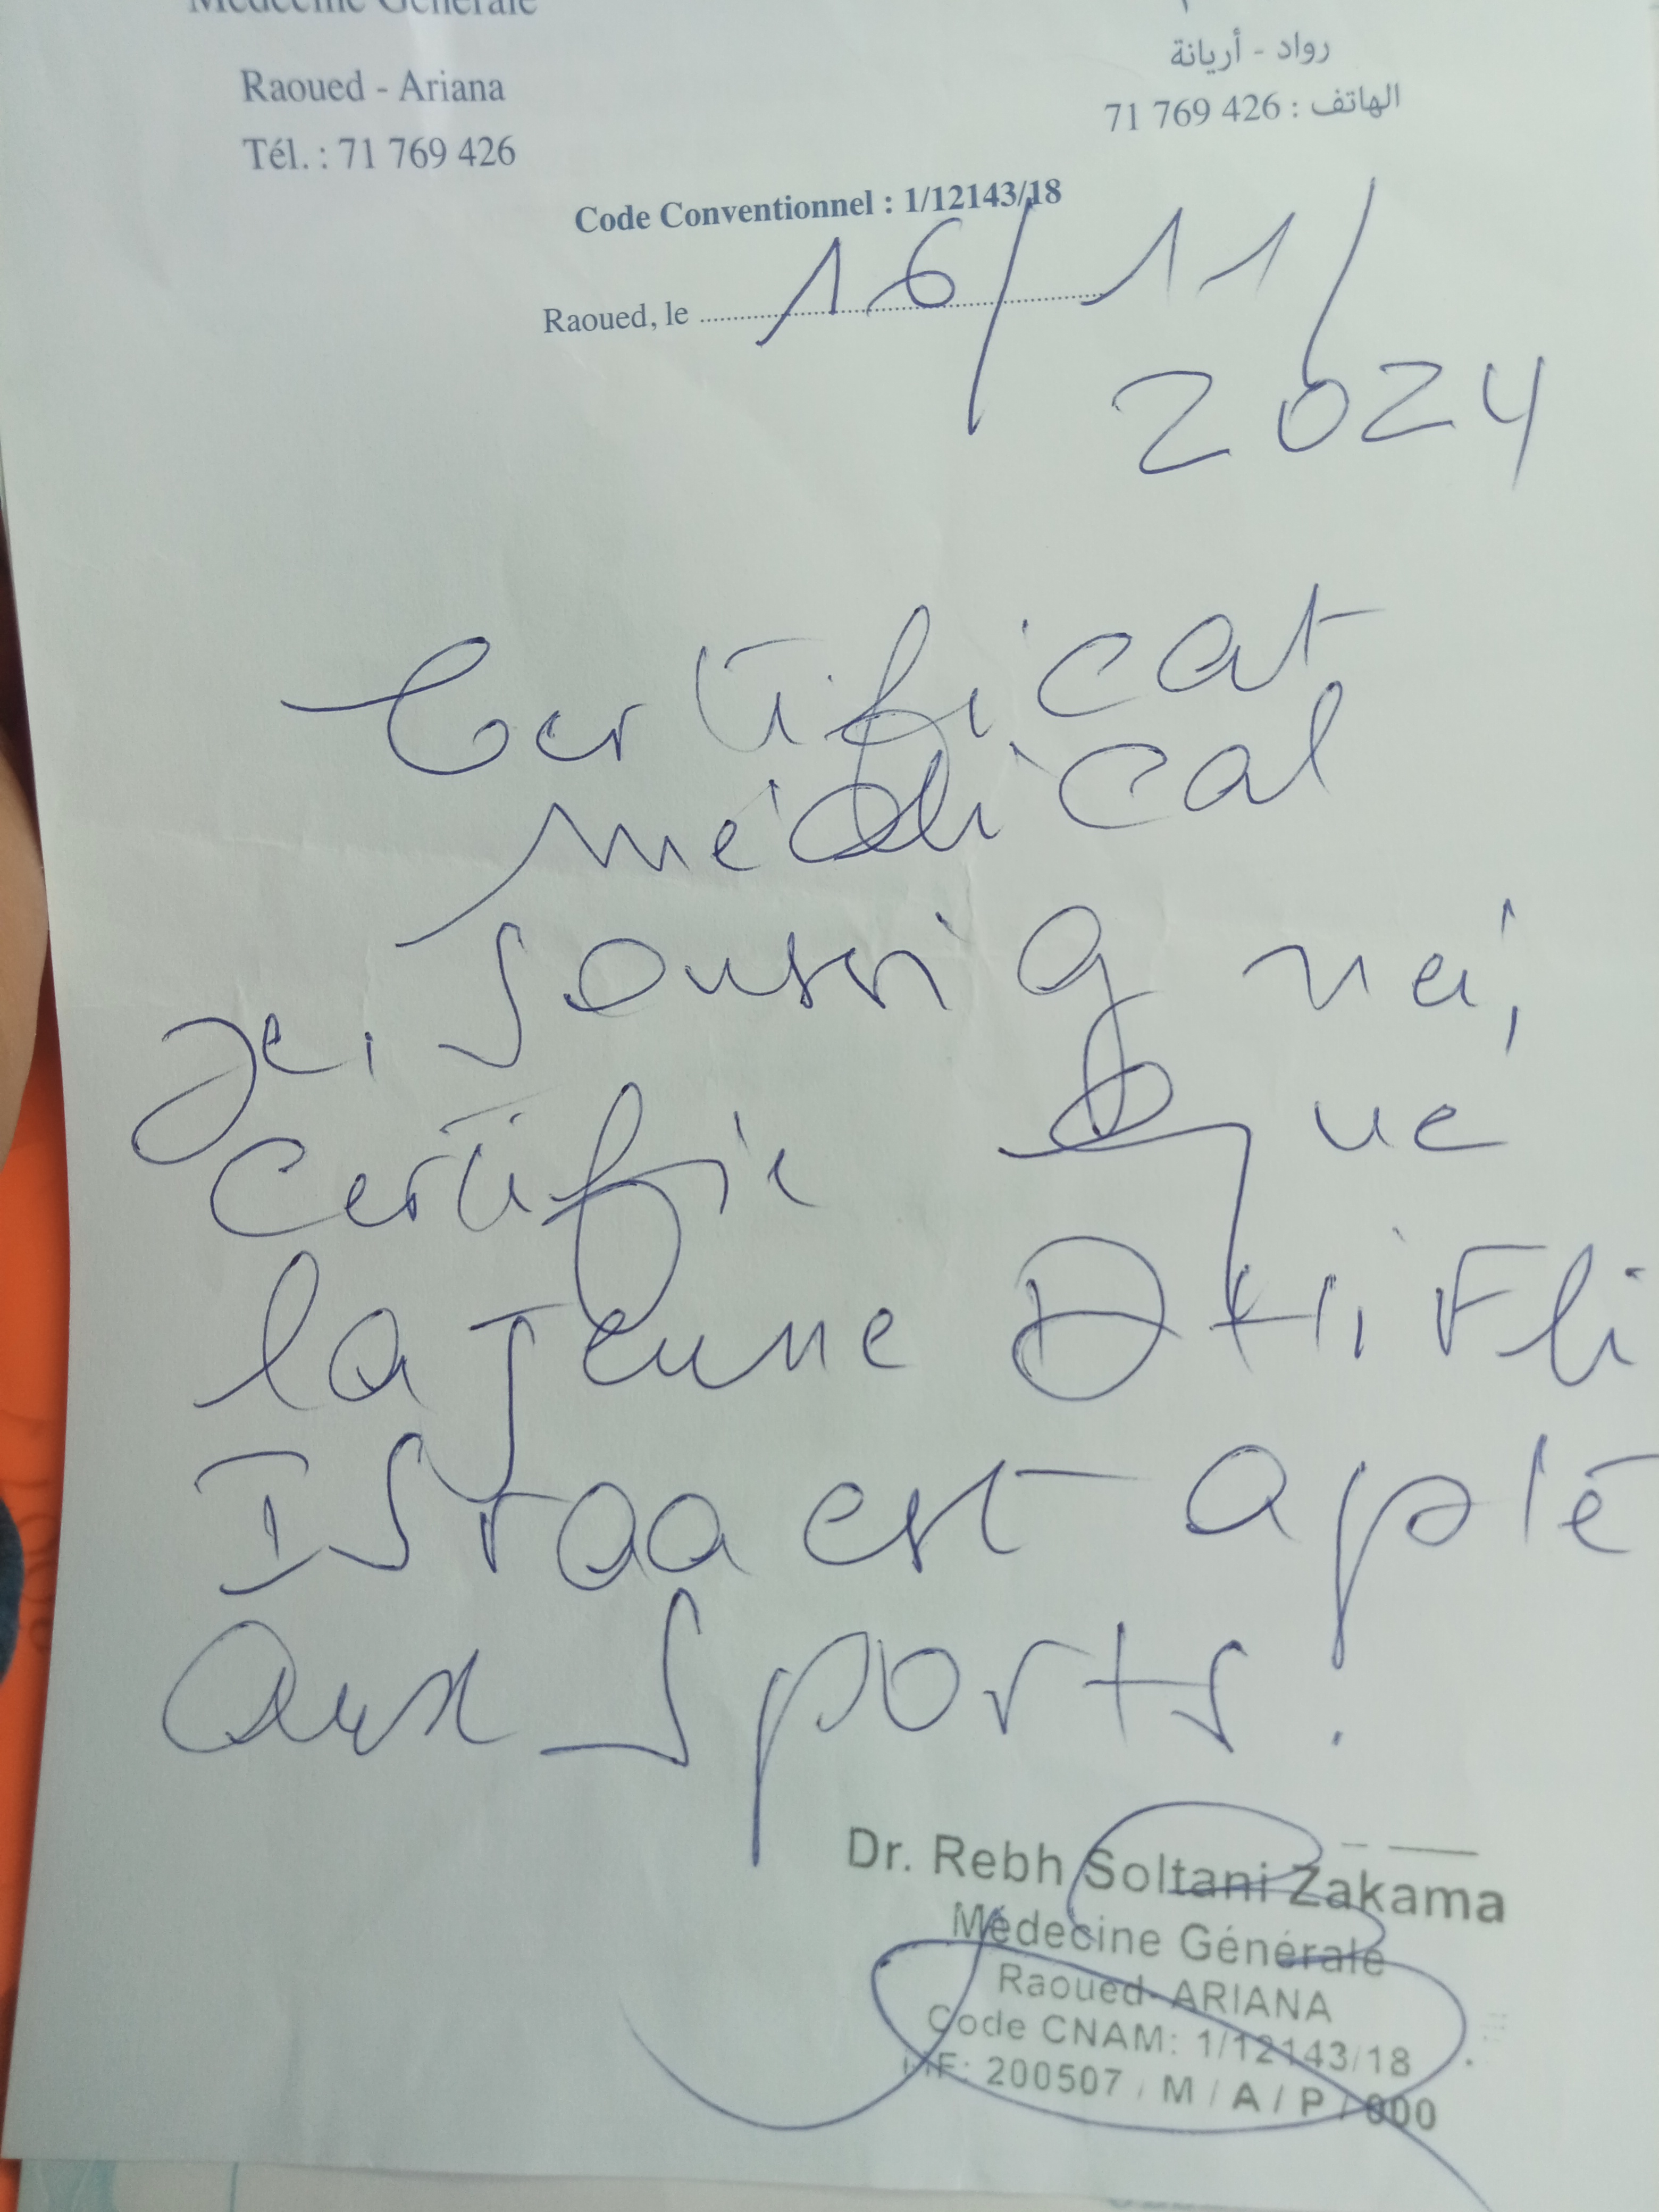 Médecine Générale
Raoued - Ariana
Tél. : 71 769 426
رواد - أريانة
الهاتف : 426 769 71
Code Conventionnel : 1/12143/18
Raoued, le 16/11/
2024
Certificat
médical
Je, soussigné,
certifie que
la jeune DHIFli
Israa est apte
aux sports.
Dr. Rebh Soltani Zakama
Médecine Générale
Raoued- ARIANA
Code CNAM: 1/12143/18
MF: 200507 / M / A / P / 000